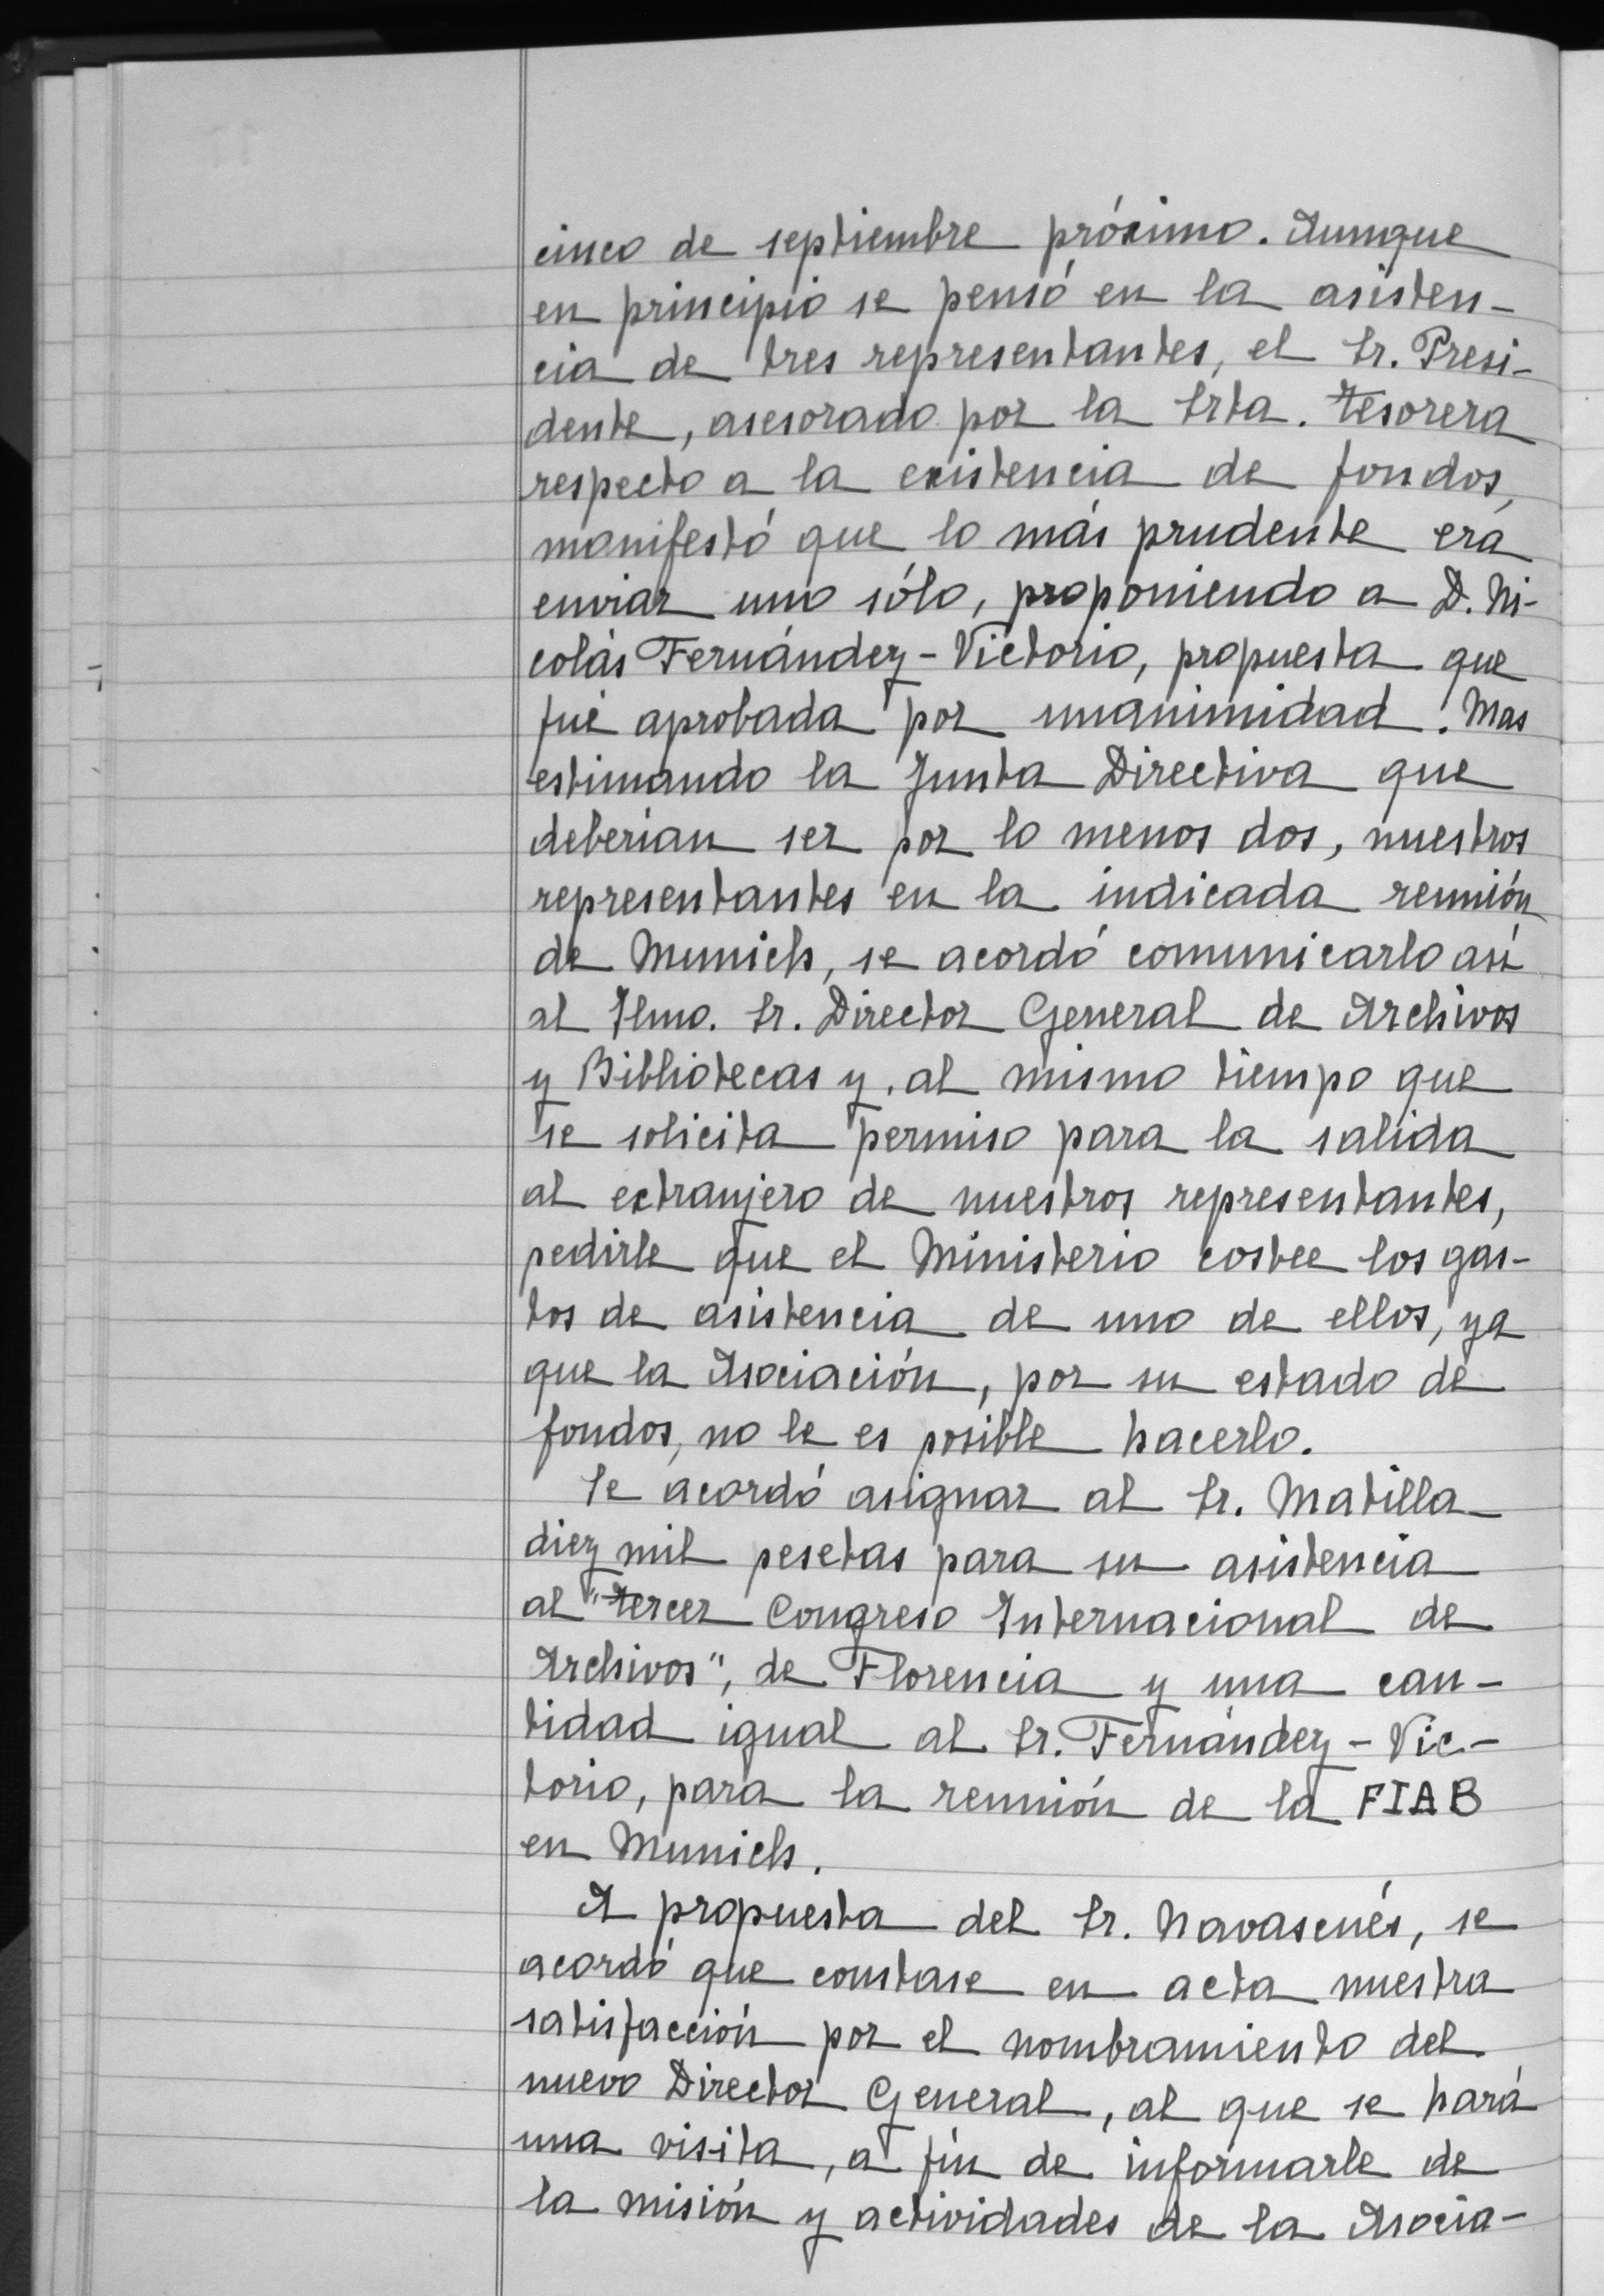 cinco de septiembre próximo. Aunque
en principio se pensó en la asisten-
cia de tres representantes, el Sr. Presi-
dente, asesorado por la Srta. Tesorera
respecto a la existencia de fondos,
manifestó que lo más prudente era
enviar uno sólo, proponiendo a D. Ni-
colás Fernández-Victorio, propuesta que
fué aprobada por unanimidad. Mas
estimando la Junta Directiva que
deberían ser por lo menos dos, nuestros
representantes en la indicada reunión
de Munich, se acordó comunicarlo así
al Ilmo. Sr. Director General de Archivos
y Bibliotecas y, al mismo tiempo que
se solicita permiso para la salida
al extranjero de nuestros representantes,
pedirle que el Ministerio costee los gas-
tos de asistencia de uno de ellos, ya
que la Asociación, por su estado de
fondos, no le es posible hacerlo.
Se acordó asignar al Sr. Matilla
diez mil pesetas para su asistencia
al "Tercer Congreso Internacional de
Archivos", de Florencia y una can-
tidad igual al Sr. Fernández-Vic-
torio, para la reunión de la FIAB
en Munich.
A propuesta del Sr. Navascués, se
acordó que constase en acta nuestra
satisfacción por el nombramiento del
nuevo Director General, al que se hará
una visita, a fin de informarle de
la misión y actividades de la Asocia-